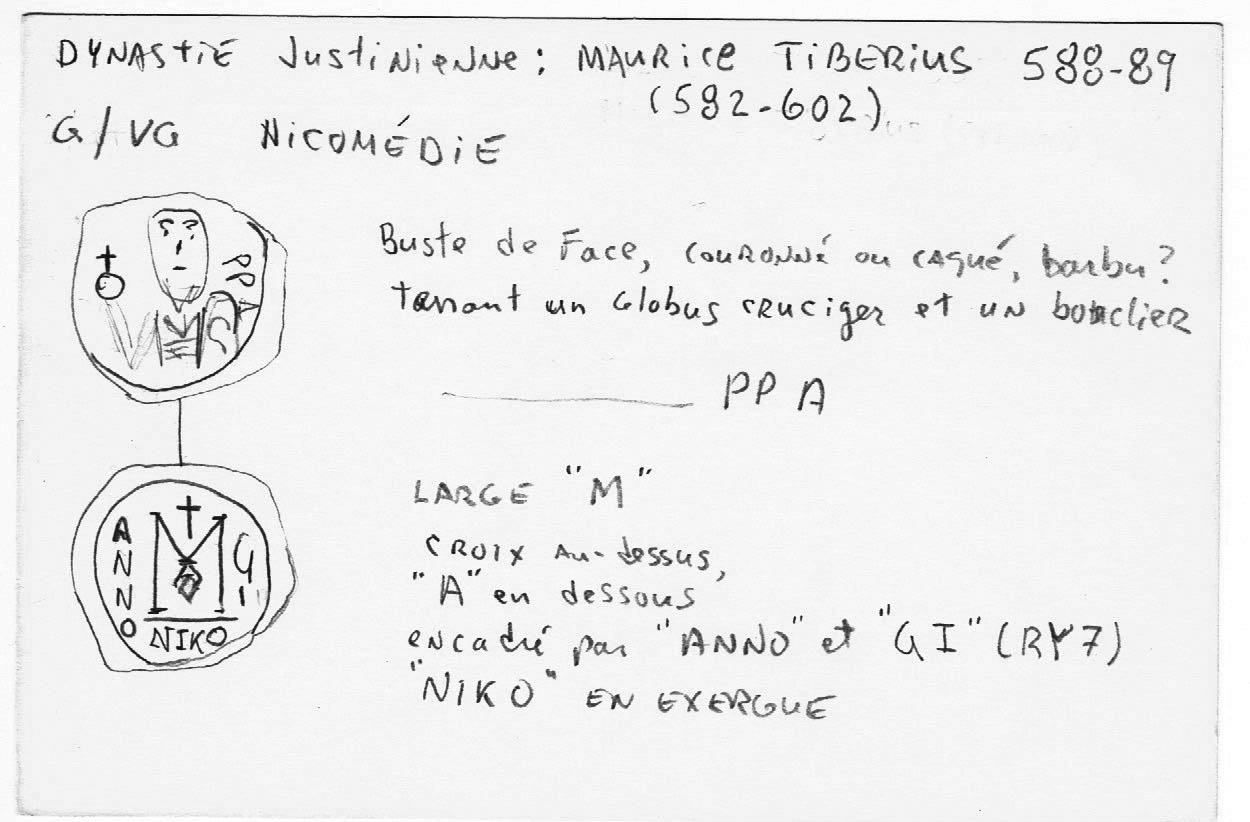 DYNASTIE JustiNieNNe : MAURICE TiBERiUS 588-89
(582-602)
G/VG NICOMÉDIE
PPA
Buste de Face, COURONNÉ ou CAQUÉ, barbu?
tenant un Globus CRUCiger et UN bouclieR
PP A
LARGE "M"
CROIX Au-dessus,
"A" en dessous
encadré par "ANNO" et "GI" (RY7)
"NIKO" EN EXERGUE
ANNO
M
GI
NIKO